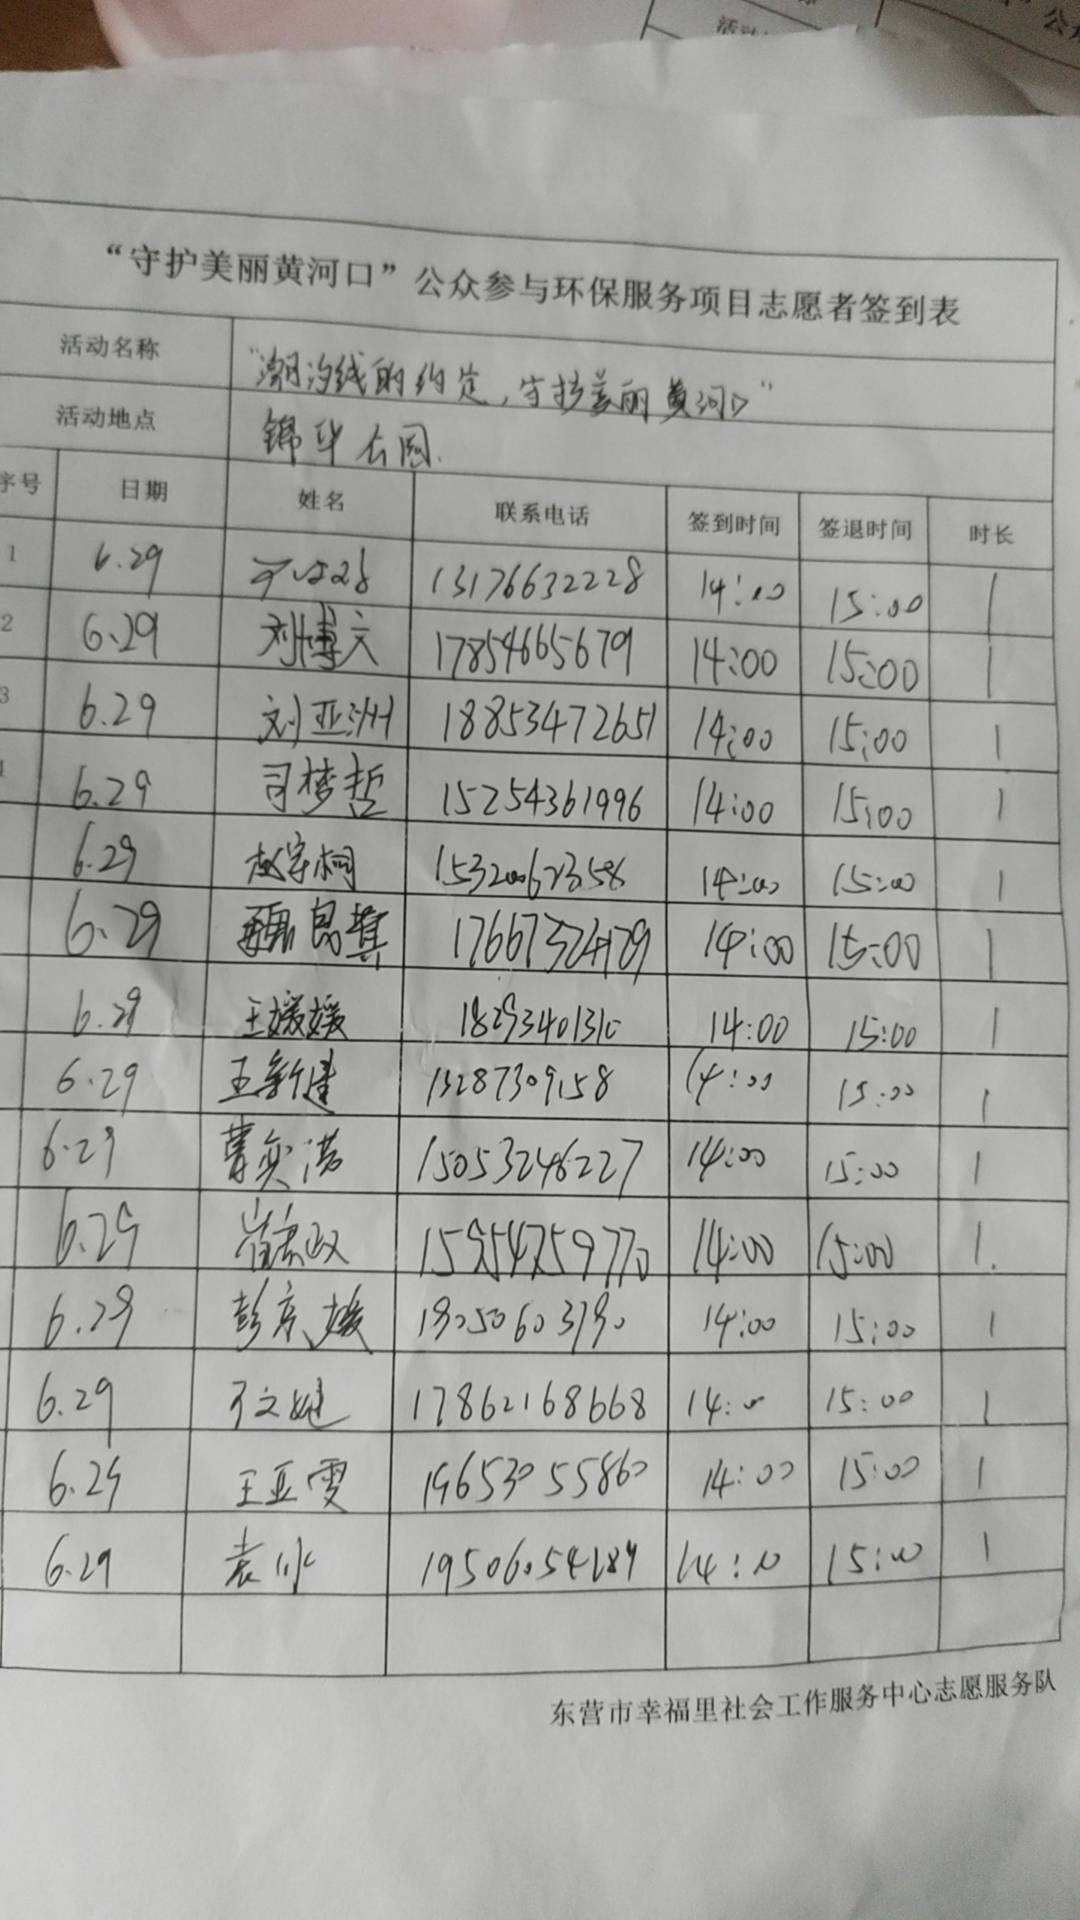 “守护美丽黄河口”公众参与环保服务项目志愿者签到表
活动名称 "潮汐线的约定，守护美丽黄河口"
活动地点 锦华公园.
序号 日期 姓名 联系电话 签到时间 签退时间 时长
1 6.29 13176632228 14:00 15:00 1
2 6.29 刘博文 17854665679 14:00 15:00 1
3 6.29 刘亚洲 18853472651 14:00 15:00 1
6.29 司梦哲 15254361996 14:00 15:00 1
6.29 赵宇桐 14:00 15:00 1
6.29 14:00 15:00 1
6.29 王媛媛 18293401310 14:00 15:00 1
6.29 王新健 13287309158 14:00 15:00 1
6.29 15053246227 14:00 15:00 1
6.29 15954759770 14:00 15:00 1.
6.29 彭京媛 14:00 15:00 1
6.29 17862168668 14:00 15:00 1
6.29 王亚雯 19653055860 14:00 15:00 1
6.29 袁冰 14:00 15:00 1
东营市幸福里社会工作服务中心志愿服务队